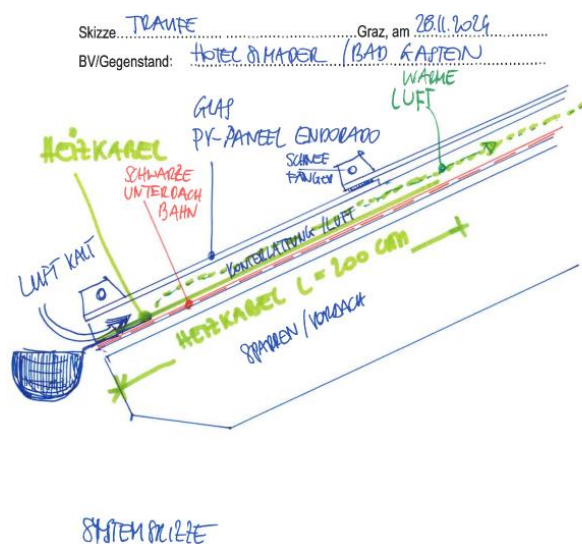 Skizze TRAUFE Graz, am 28.11.2024
BV/Gegenstand: HOTEL SIMADER / BAD GASTEIN
WARME
LUFT
GLAS
PV-PANEEL ENDORADO
HEIZKABEL
SCHNEE
FÄNGER
SCHWARZE
UNTERDACH
BAHN
LUFT KALT
KONTERLATTUNG / LUFT
HEIZKABEL L = 200 cm
SPARREN / VORDACH
SYSTEMSKIZZE